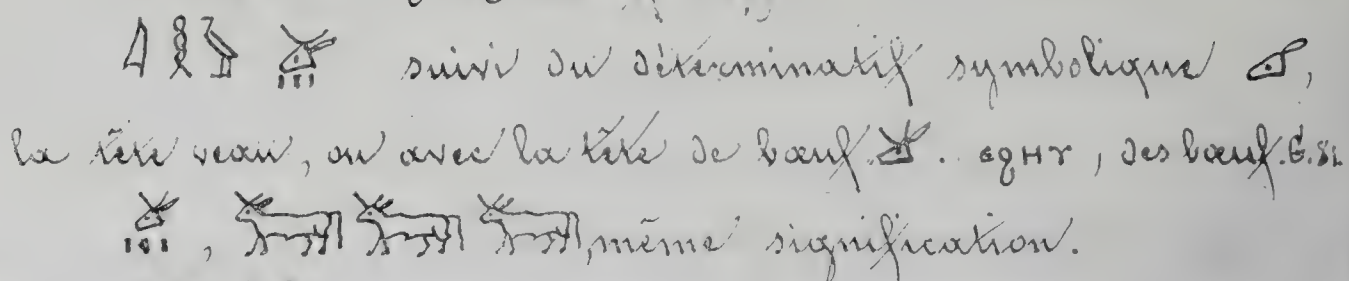 𓇋𓎛𓅱 𓃾𓏥 suivi du déterminatif symbolique ,
la tête veau, ou avec la tête de bœuf 𓃾. ⲉϩⲏⲩ, des bœuf. G.
𓃾𓏥, 𓃒𓃒𓃒, même signification.